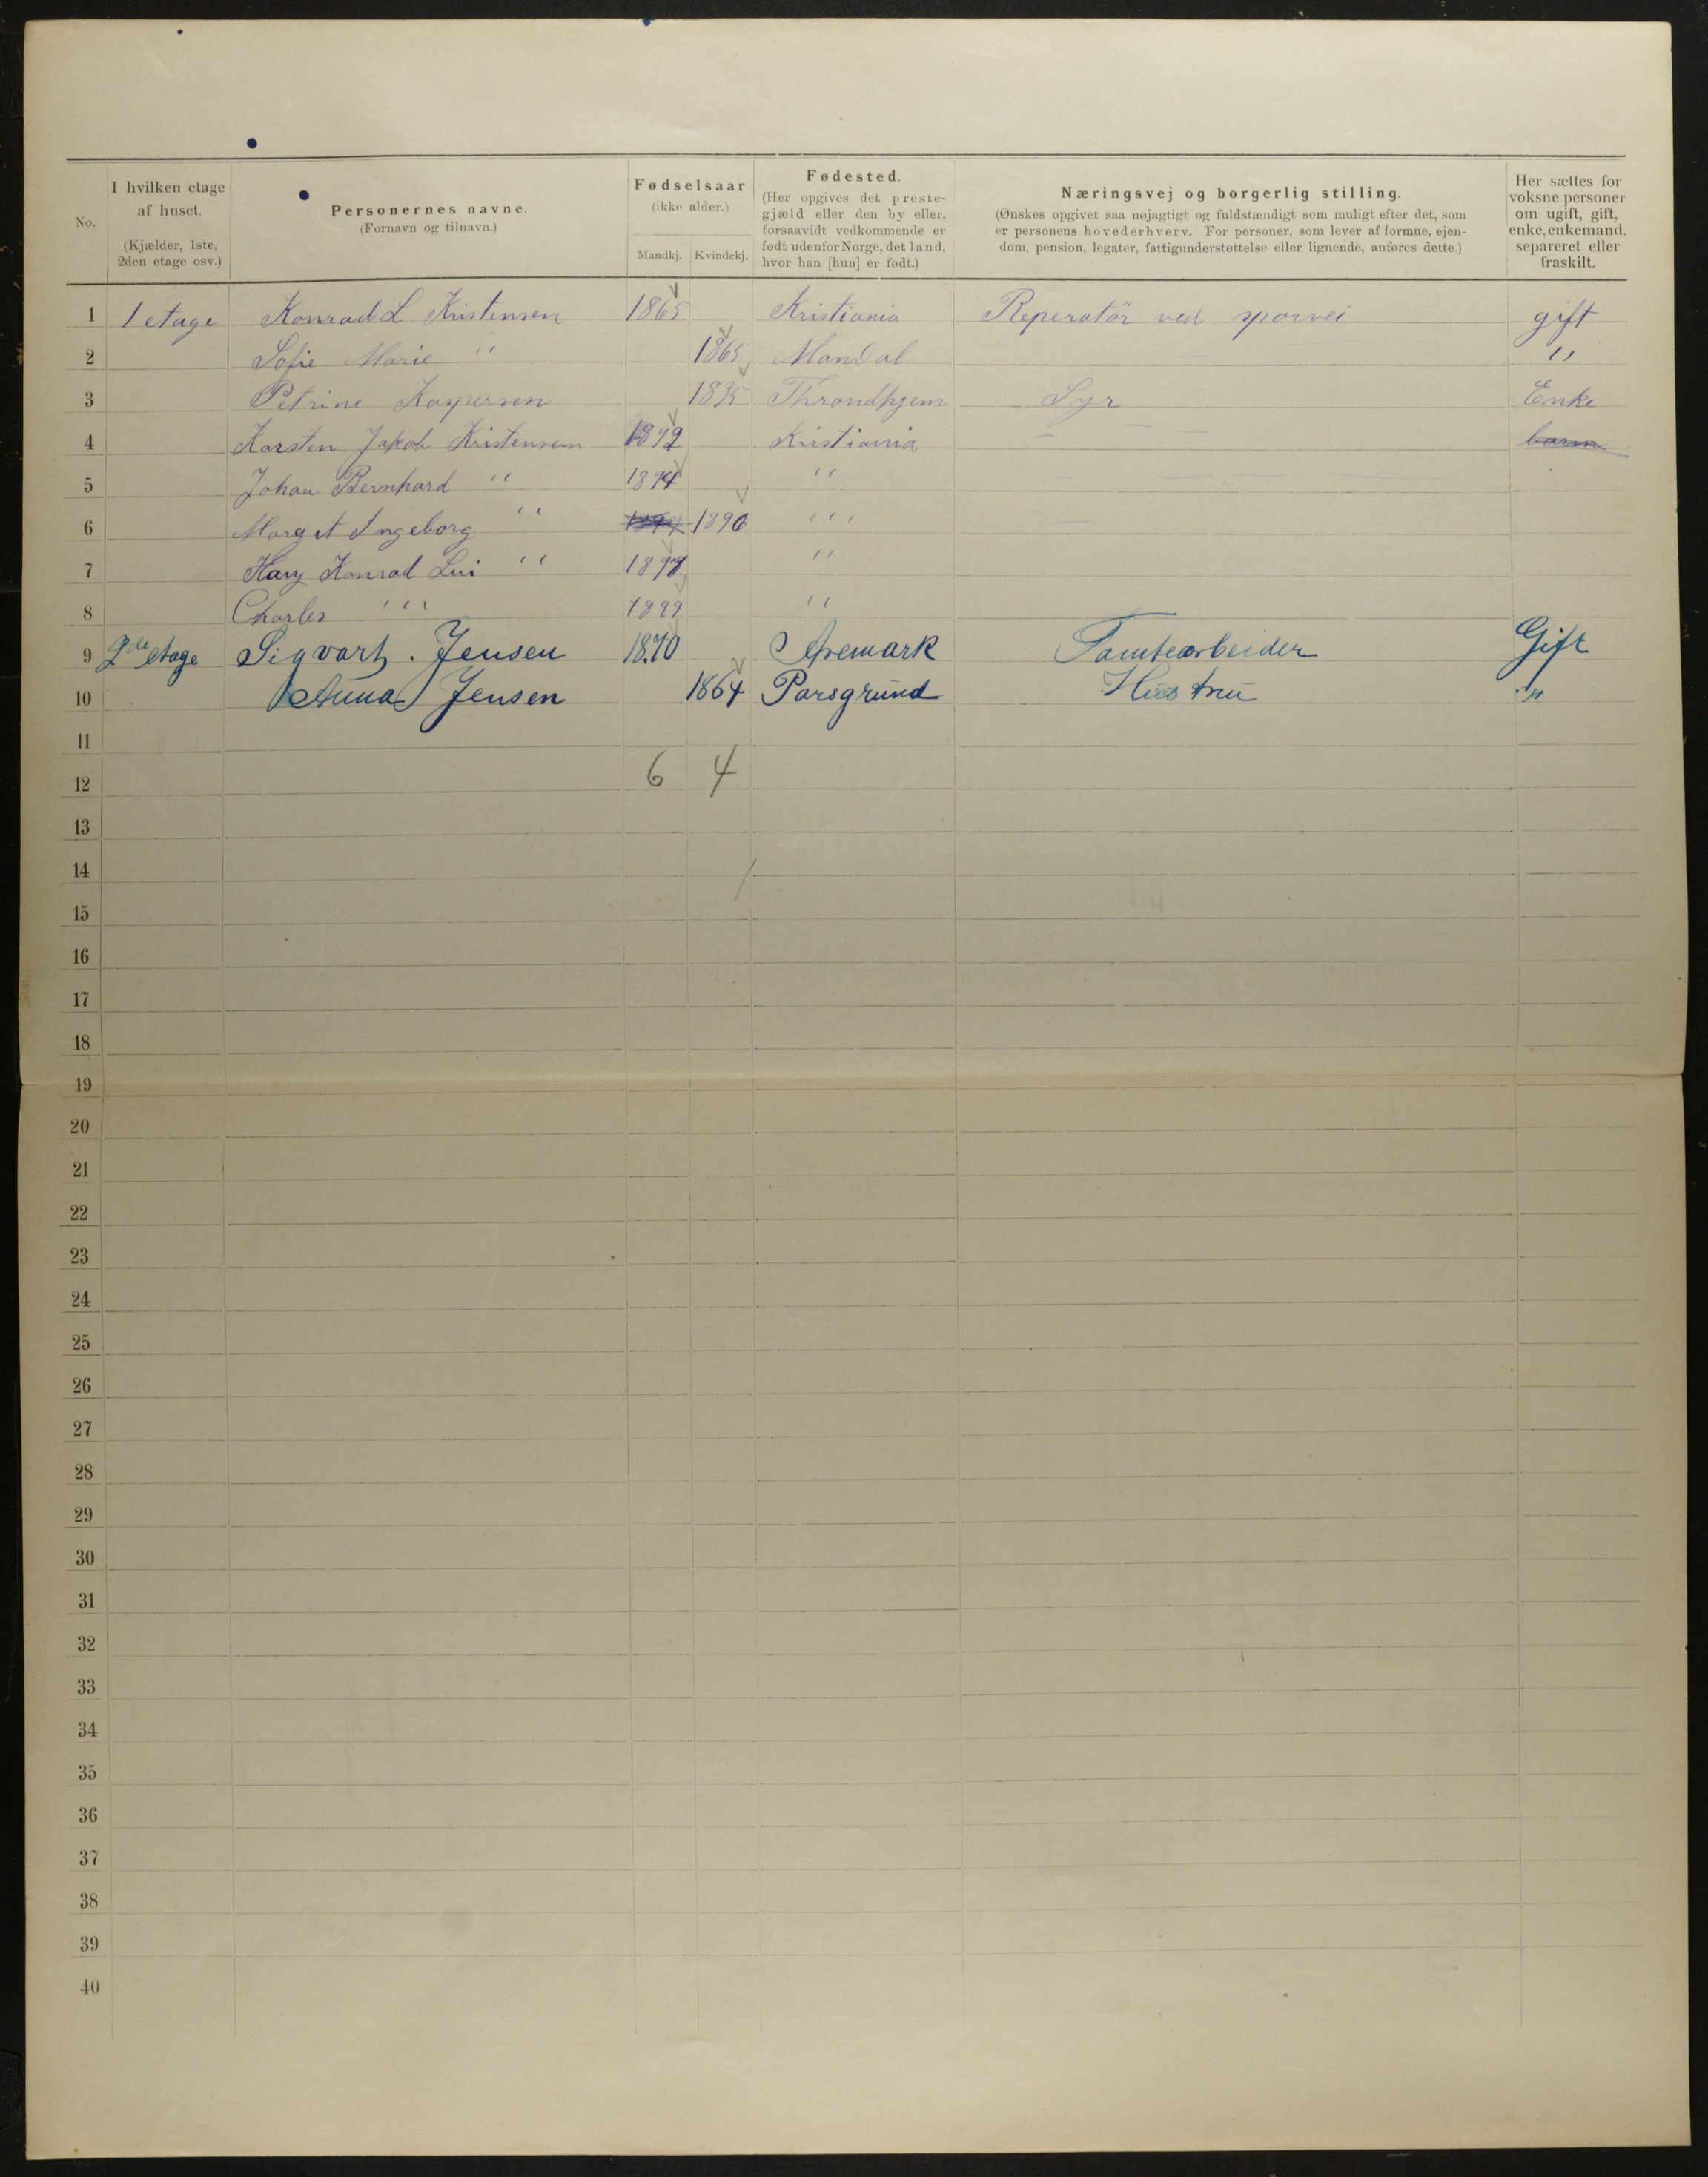 No. I hvilken etage af huset. (Kjælder, 1ste, 2den etage osv.) Personernes navne. (Fornavn og tilnavn.) Fødselsaar (ikke alder.) Mandkj. Kvindekj. Fødested. (Her opgives det prestegjæld eller den by eller, forsaavidt vedkommende er født udenfor Norge, det land, hvor han [hun] er født.) Næringsvej og borgerlig stilling. (Ønskes opgivet saa nøjagtigt og fuldstændigt som muligt efter det, som er personens hovederhverv. For personer, som lever af formue, ejendom, pension, legater, fattigunderstøttelse eller lignende, anføres dette.) Her sættes for voksne personer om ugift, gift, enke, enkemand, separeret eller fraskilt.
1 1 etage Konrad L Kristensen 1865 Kristiania Reperatör ved sporvei gift
2 Sofie Marie " 1865 Mandal "
3 Petrine Kaspersen 1835 Throndhjem Syr Enke
4 Karsten Jakob Kristensen 1892 Kristiania barn
5 Johan Bernhard " 1894 "
6 Margit Ingeborg " 1896 "
7 Harry Konrad Lui " 1897 "
8 Charles " 1899 "
9 2de etage Sigvart. Jensen 1870 Aremark Tomtearbeider Gift
10 Anna Jensen 1864 Porsgrund Hustru "
11
12 6 4
13
14
15
16
17
18
19
20
21
22
23
24
25
26
27
28
29
30
31
32
33
34
35
36
37
38
39
40